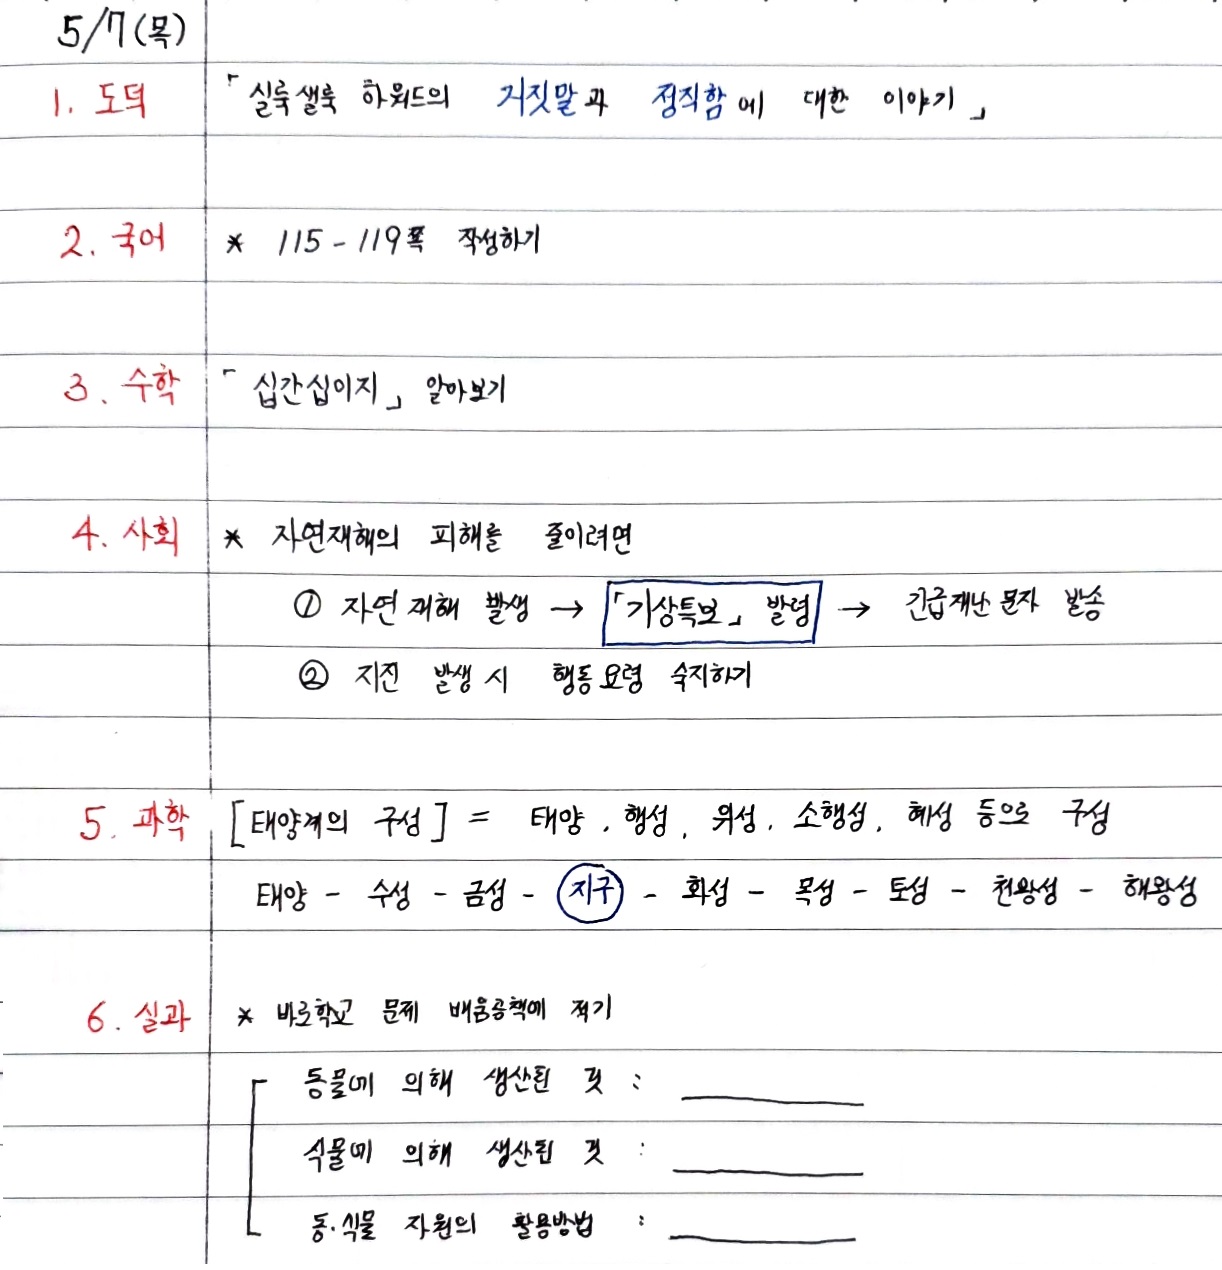 5/7(목)
1. 도덕 「실룩샐룩 하워드의 거짓말과 정직함에 대한 이야기」
2. 국어 * 115-119쪽 작성하기
3. 수학 「십간십이지」 알아보기
4. 사회 * 자연재해의 피해를 줄이려면
① 자연재해 발생 → 「기상특보」 발령 → 긴급재난 문자 발송
② 지진 발생 시 행동요령 숙지하기
5. 과학 [태양계의 구성] = 태양, 행성, 위성, 소행성, 혜성 등으로 구성
태양 - 수성 - 금성 - 지구 - 화성 - 목성 - 토성 - 천왕성 - 해왕성
6. 실과 * 바로학교 문제 배움공책에 적기
동물에 의해 생산된 것 :
식물에 의해 생산된 것 :
동·식물 자원의 활용방법 :